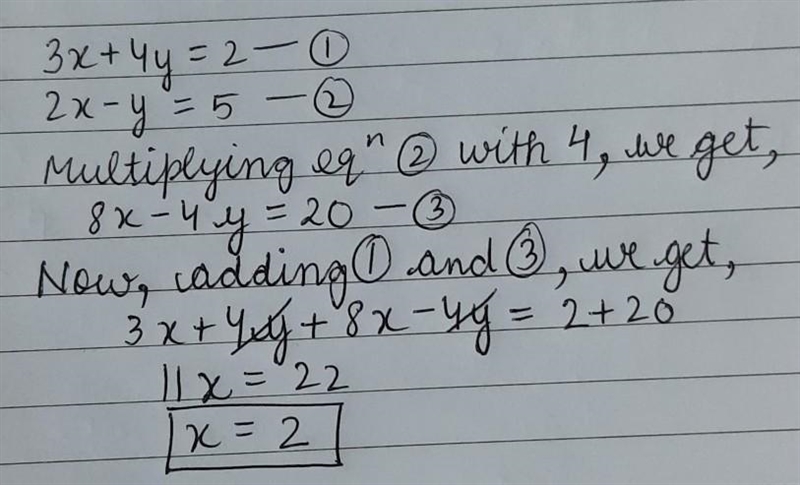 3x + 4y = 2 — ①
2x - y = 5 — ②
Multiplying eqⁿ ② with 4, we get,
8x - 4y = 20 — ③
Now, adding ① and ③, we get,
3x + 4y + 8x - 4y = 2 + 20
11x = 22
x = 2